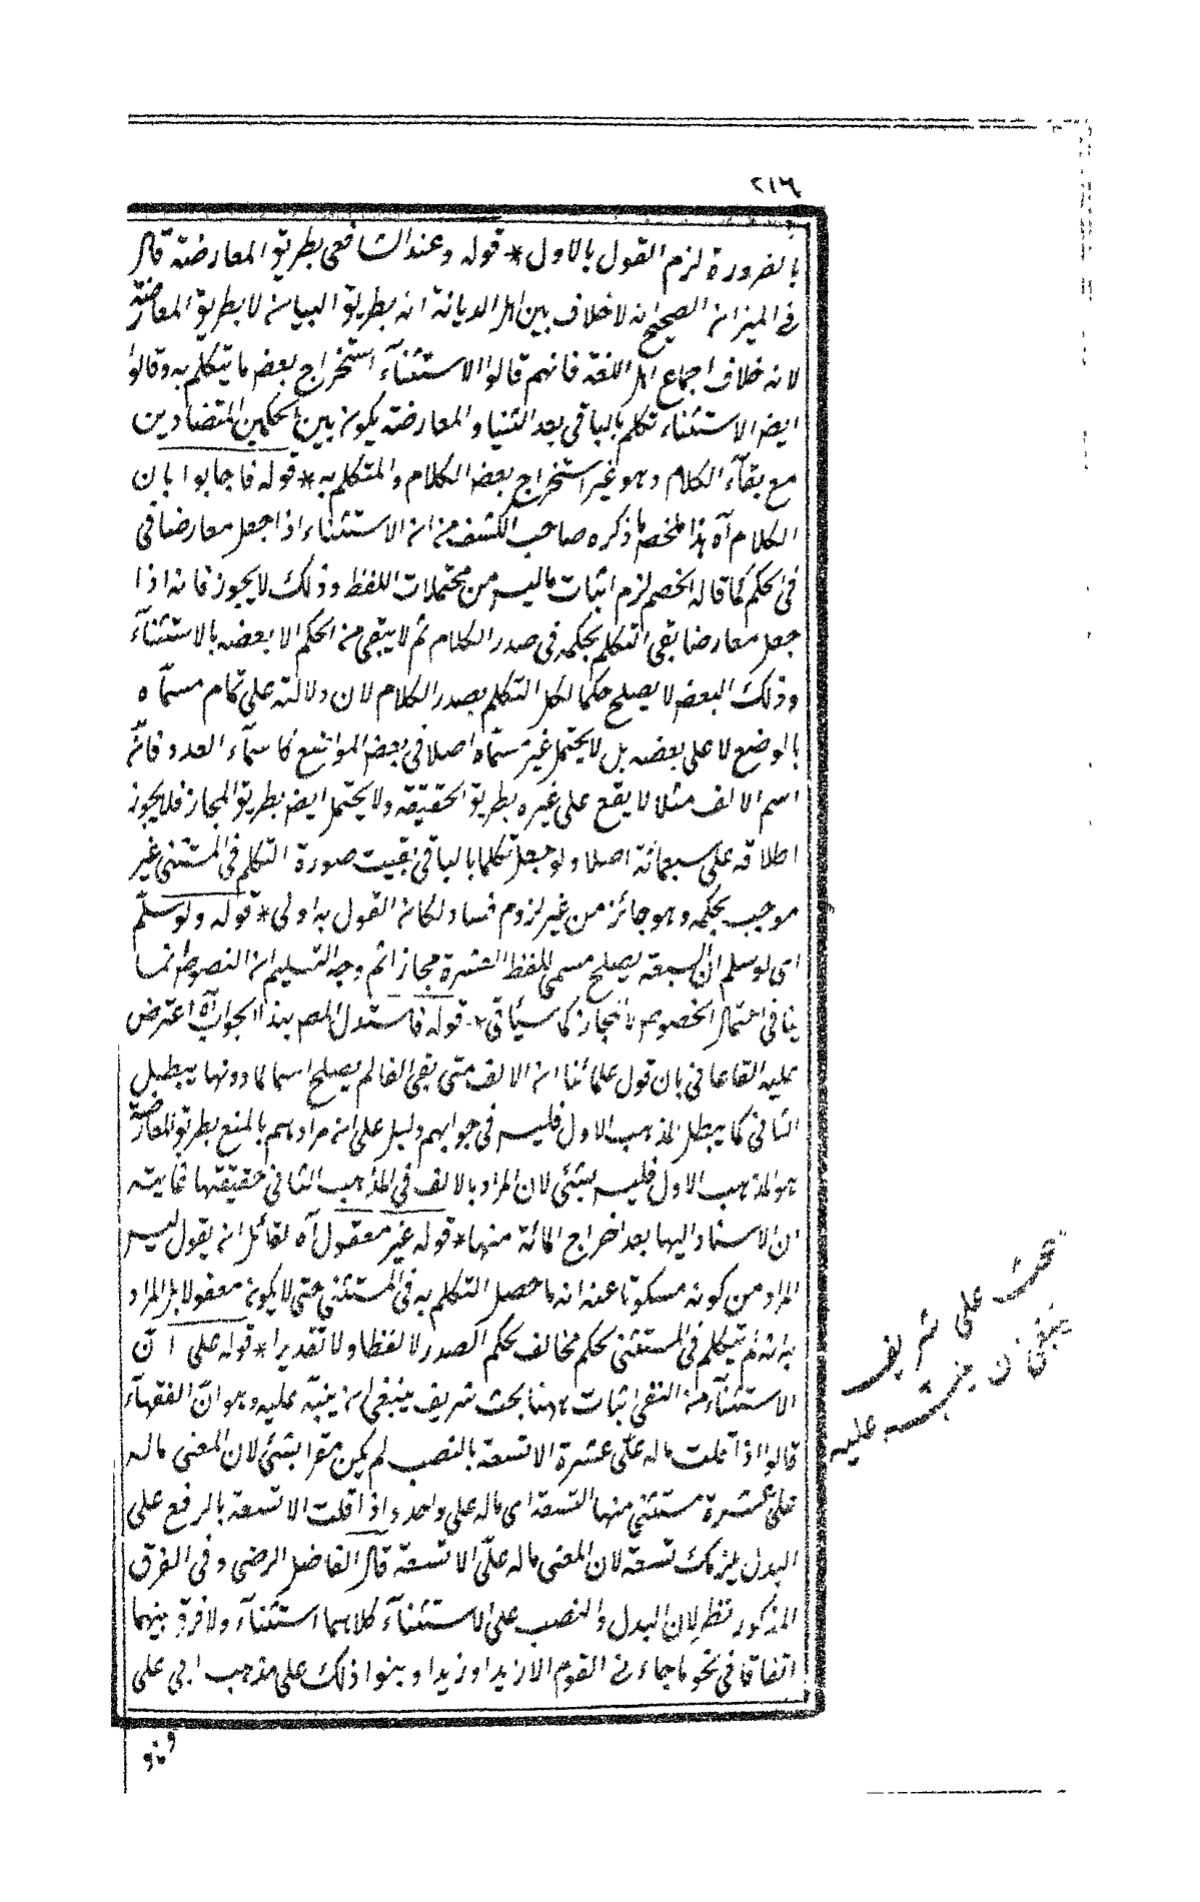 ٢١٦
بالضرورة لزم القول بالاول * قوله وعند الشافعى بطريق المعارضة قال
فى الميزان الصحيح انه لا خلاف بين اهل الديانة انه بطريق البيان لا بطريق المعارضة
لانه خلاف اجماع اهل اللغة فانهم قالوا الاستثنآء استخراج بعض ما يتكلم به وقالوا
ايض الاستثناء تكلم بالباقى بعد الثنيا والمعارضة يكون بين الحكمين المتضادين
مع بقآء الكلام وهو غير استخراج بعض الكلام والمتكلم به * قوله فاجابوا بان
الكلام آه هذا ملخص ما ذكره صاحب الكشف من ان الاستثناء اذا جعل معارضا فى
فى الحكم كما قاله الخصم لزم اثبات ما ليس من محتملات اللفظ وذلك لا يجوز فانه اذا
جعل معارضا بقى التكلم بحكمه فى صدر الكلام ثم لا يبقى من الحكم الا بعضه بالاستثنآء
وذلك البعض لا يصلح حكما لكل التكلم بصدر الكلام لان دلالته على تمام مسمآه
بالوضع لا على بعضه بل لا يحتمل غير مسماه اصلا فى بعض المواضع كاسمآء العدد فانّ
اسم الالف مثلا لا يقع على غيره بطريق الحقيقة ولا يحتمل ايض بطريق المجاز فلا يجوز
اطلاقه على سبعمائة اصلا ولو جعل تكلما بالباقى بقيت صورة التكلم فى المستثنى غير
موجب بحكمه وهو جائز من غير لزوم فساد لكان القول به اولى * قوله ولو سلّم
اى لو سلم ان السبعة يصلح مسمى للفظ العشرة مجازا ثم وجه التسليم ان النصوص انما
ينافى احتمال الخصوص لا المجاز كما سيأتى * قوله فاستدل المص بهذا الجواب آه اعترض
عليه القاءانى بان قول علمائنا ان الالف متى بقى الفا لم يصلح اسما لما دونها يبطل
الثانى كما يبطل المذهب الاول فليس فى جوابهم دليل على ان مرادهم بالمنع بطريق المعارضة
هو المذهب الاول فليس بشئ لان المراد بالالف فى المذهب الثانى حقيقتها غايته
ان الاسناد اليها بعد اخراج المائة منها * قوله غير معقول آه لقائل ان يقول ليس
المراد من كونه مسكوتا عنه انه ما حصل التكلم به فى المستثنى حتى لا يكون معقولا بل المراد
به انه لم يتكلم فى المستثنى بحكم مخالف بحكم الصدر لا لفظا ولا تقديرا * قوله على انّ
الاستثنآء من النفى اثبات ههنا بحث شريف ينبغى ان ينبّه عليه وهو انّ الفقهآء
قالوا اذا قلت ما له علىّ عشرة الا تسعة بالنصب لم يكن مقرا بشئ لان المعنى ما له
علىّ عشرة مستثنى منها التسعة اى ما له على واحد واذا قلت الا تسعة بالرفع على
البدل يلزمك تسعة لان المعنى ما له علىّ الا تسعة قال الفاضل الرضى وفى الفرق
المذكور نظر لان البدل والنصب على الاستثنآء كلاهما استثنآء ولا فرق بينهما
اتفاقا فى نحو ما جاءنى القوم الا زيدا وزيد وبنوا ذلك على مذهب ابى على
بحث على شريف
ينبغى ان ينبه عليه